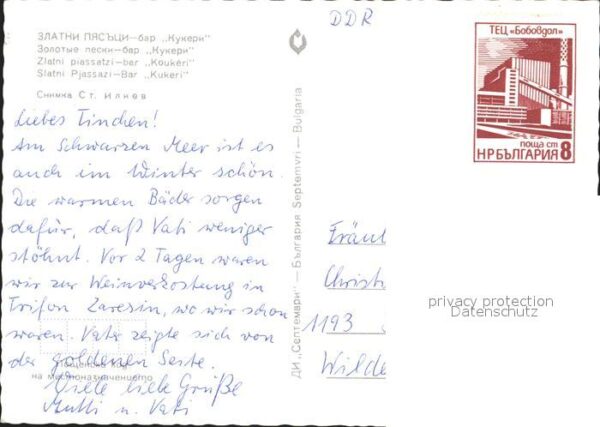 ЗЛАТНИ ПЯСЪЦИ—бар „Кукери"
Золотые пески—бар „Кукери"
Zlatni piassatzi—bar „Koukéri"
Slatni Pjassazi—Bar „Kukeri"
Снимка Ст. Илиев
Liebes Tinchen!
Am Schwarzen Meer ist es
auch im Winter schön.
Die warmen Bäder sorgen
dafür, daß Vati weniger
stöhnt. Vor 2 Tagen waren
wir zur Weinverkostung in
Trifon Zarezin, wo wir schon
waren. Vater zeigte sich von
der goldenen Seite.
на местоназначението
Viele liebe Grüße
Mutti u. Vati
ДИ „Септември" — България Septemvri — Bulgaria
DDR
ТЕЦ «Бобовдол»
поща ст
НРБЪЛГАРИЯ 8
Fräul
Christ
1193
Wilde
privacy protection
Datenschutz